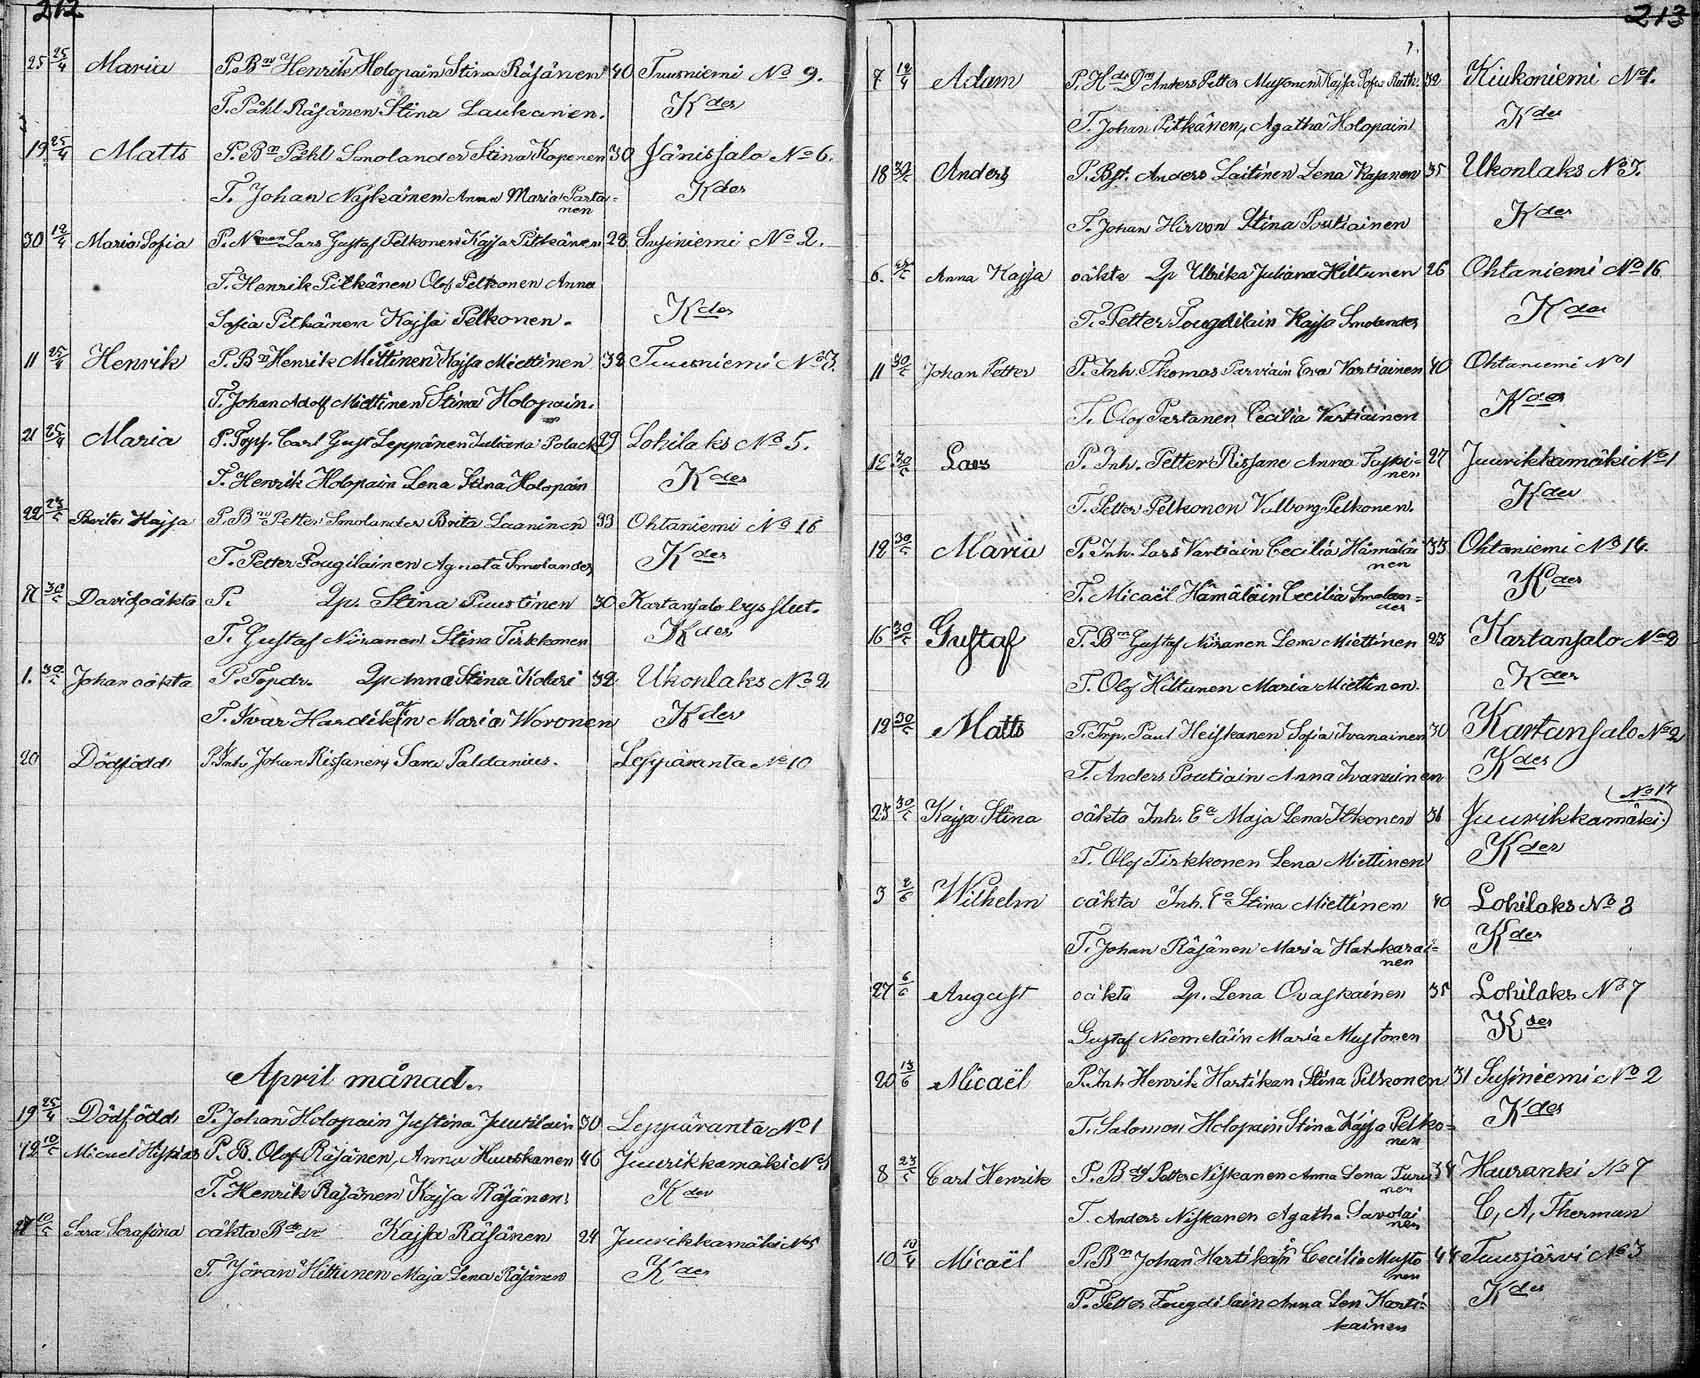 212
25 25/4 Maria P. Bn Henrik Holopain Stina Räsänen 40 Tuusniemi No 9.
T. Påhl Räsänen Stina Laukanen. Kder
19 25/4 Matts P. Bn Påhl Smolander Stina Koponen 30 Jänissalo No 6.
T. Johan Nyskänen Anna Maria Parta= Kder
nen
30 12/4 Maria Sofia Lars Gustaf Pelkonen Kajsa Pitkänen 28 Susiniemi No 2.
T. Henrik Pitkänen Olof Pelkonen Anna
Sofia Pitkänen Kajsa Pelkonen. Kder
11 25/4 Henrik P. Bn Henrik Miettinen Kajsa Miettinen 38 Tuusniemi No 3.
T. Johan Adolf Miettinen Stina Holopain.
21 25/4 Maria P. Torp. Carl Gust Leppänen Juliana Polack 29 Lohilaks No 5.
T. Henrik Holopain Lena Stina Holopain Kder
22 Brita Kajsa P. Bn Petter Smolander Brita Laaninen 33 Ohtaniemi No 16
T. Petter Fougilainen Agneta Smolander Kder
David oäkta P. Qp. Stina Puustinen 30 Kartansalo
T. Gustaf Niiranen Stina Tirkkonen Kder
1. Johan oäkta P. Torpdr. Qp Anna Stina Koberi 32 Ukonlaks No 2
T. Ivar Hardikain Maria Woronen Kder
20 Dödfödd P. Inh. Johan Rissanen, Sara Paldanius. Leppäranta No 10
April månad.
19 25/4 Dödfödd P. Johan Holopain Justina Juutilain 30 Leppäranta No 1
P. B. Olof Räsänen, Anna Huuskanen 46 Juurikkamäki No
T. Henrik Räsänen Kajsa Räsänen. Kder
Sara Serafina oäkta Kajsa Räsänen 24 Juurikkamäki No 5
T. Jöran Hiltunen Maja Lena Räsänen Kder
213
7 12/4 Adam Anders Petter Musonen Kajsa Sofia 32 Kiukoniemi No 1.
T. Johan Pitkänen, Agatha Holopain Kder
18 Anders Anders Laitinen Lena Kasanen 35 Ukonlaks No 3.
T. Johan Hirvon Stina Poutiainen Kder
6. Anna Kajsa oäkta Qp Ulrika Juliana Hiltunen 26 Ohtaniemi No 16
T. Petter Fougdilain Kajsa Smolander Kder
11 Johan Petter P. Inh. Thomas Parviain Eva Vartiainen 40 Ohtaniemi No 1
T. Olof Partanen Cecilia Vartiainen Kder
Lars P. Inh. Petter Rissane Anna 27 Juurikkamäki No 1
nen
T. Petter Pelkonen Valborg Pelkonen. Kder
12 Maria P. Inh. Lars Vartiain Cecilia Hämäläi 33 Ohtaniemi No 14.
nen
T. Micaël Hämäläin Cecilia Smolan= Kder
der
16 Gustaf P. Bn Gustaf Niiranen Lena Miettinen 23 Kartansalo No 2
T. Olof Hiltunen Maria Miettinen. Kder
12 Matts P. Torp. Paul Heiskanen Sofia Ivanainen 30 Kartansalo No 2
T. Anders Poutiain Anna Ivanainen Kder
No 17
23 Kajsa Stina oäkta Inh. Ea Maja Lena Itkonen 36 Juurikkamäki
T. Olof Tirkkonen Lena Miettinen Kder
3 2/6 Wilhelm oäkta Inh. Ea Stina Miettinen 40 Lohilaks No 8
T. Johan Räsänen Maria Hatskarai= Kder
nen
27 6/6 August oäkta Qp. Lena Ovaskainen 35 Lohilaks No 7
Gustaf Niemeläin Maria Mustonen Kder
20 13/6 Micaël P. Inh Henrik Hartikan Stina Pelkonen 31 Susiniemi No 2
T. Salomon Holopain Stina Kajsa Pelko= Kder
nen
8 Carl Henrik Petter Niskanen Anna Lena Turu 34 Hauranki No 7
nen
T. Anders Niskanen Agatha Savolai C, A, Therman
nen
10 Micaël P. Bn Johan Hartikain Cecilia Musto 44 Tuusjärvi No 3
nen
T. Petter Fougdilain Anna Len Harti- Kder
kainen